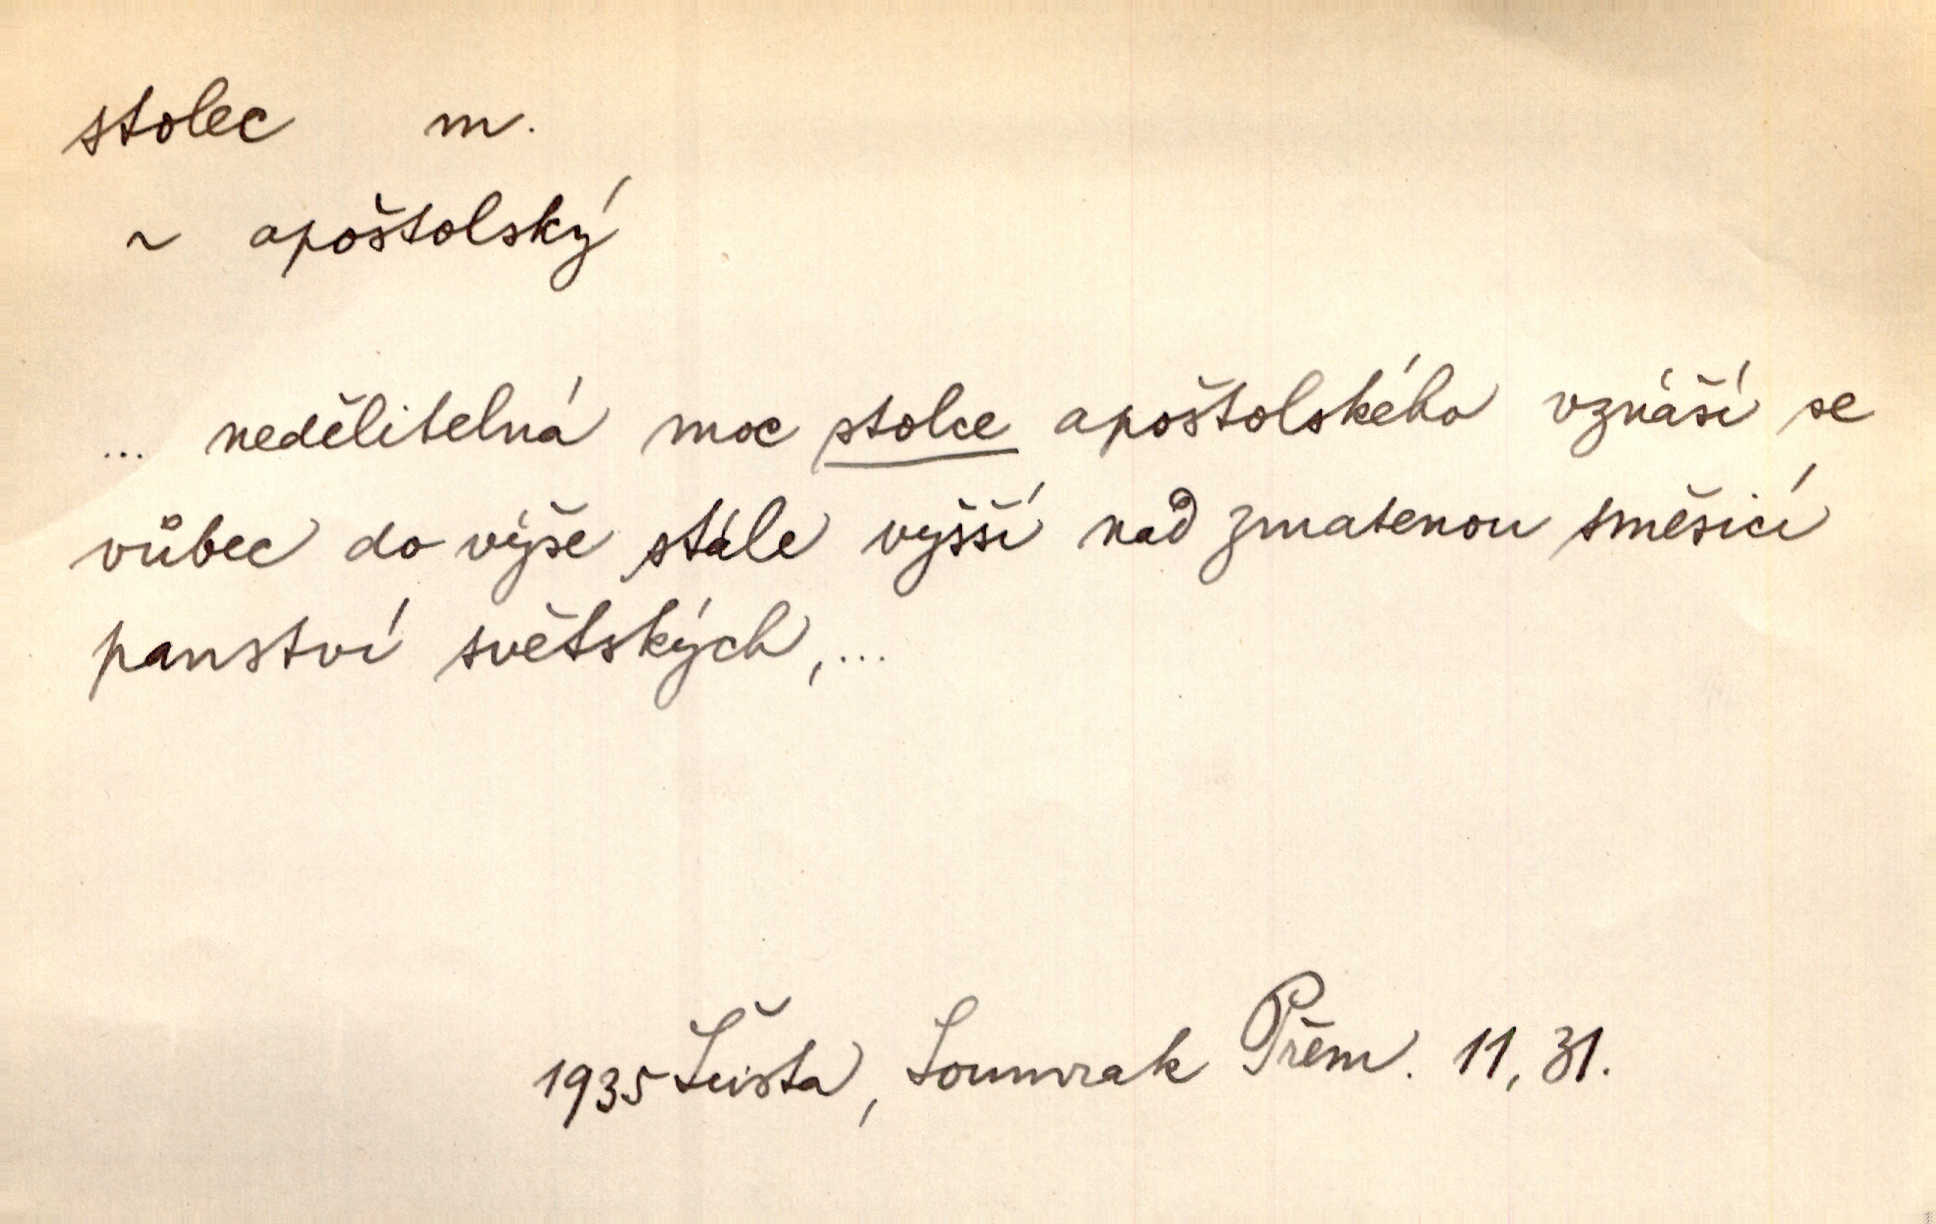 stolec m.
~ apoštolský
... nedělitelná moc stolce apoštolského vznáší se
vůbec do výše stále vyšší nad zmatenou směsicí
panství světských, ...
1935 Šusta, Soumrak Přem. 11, 31.